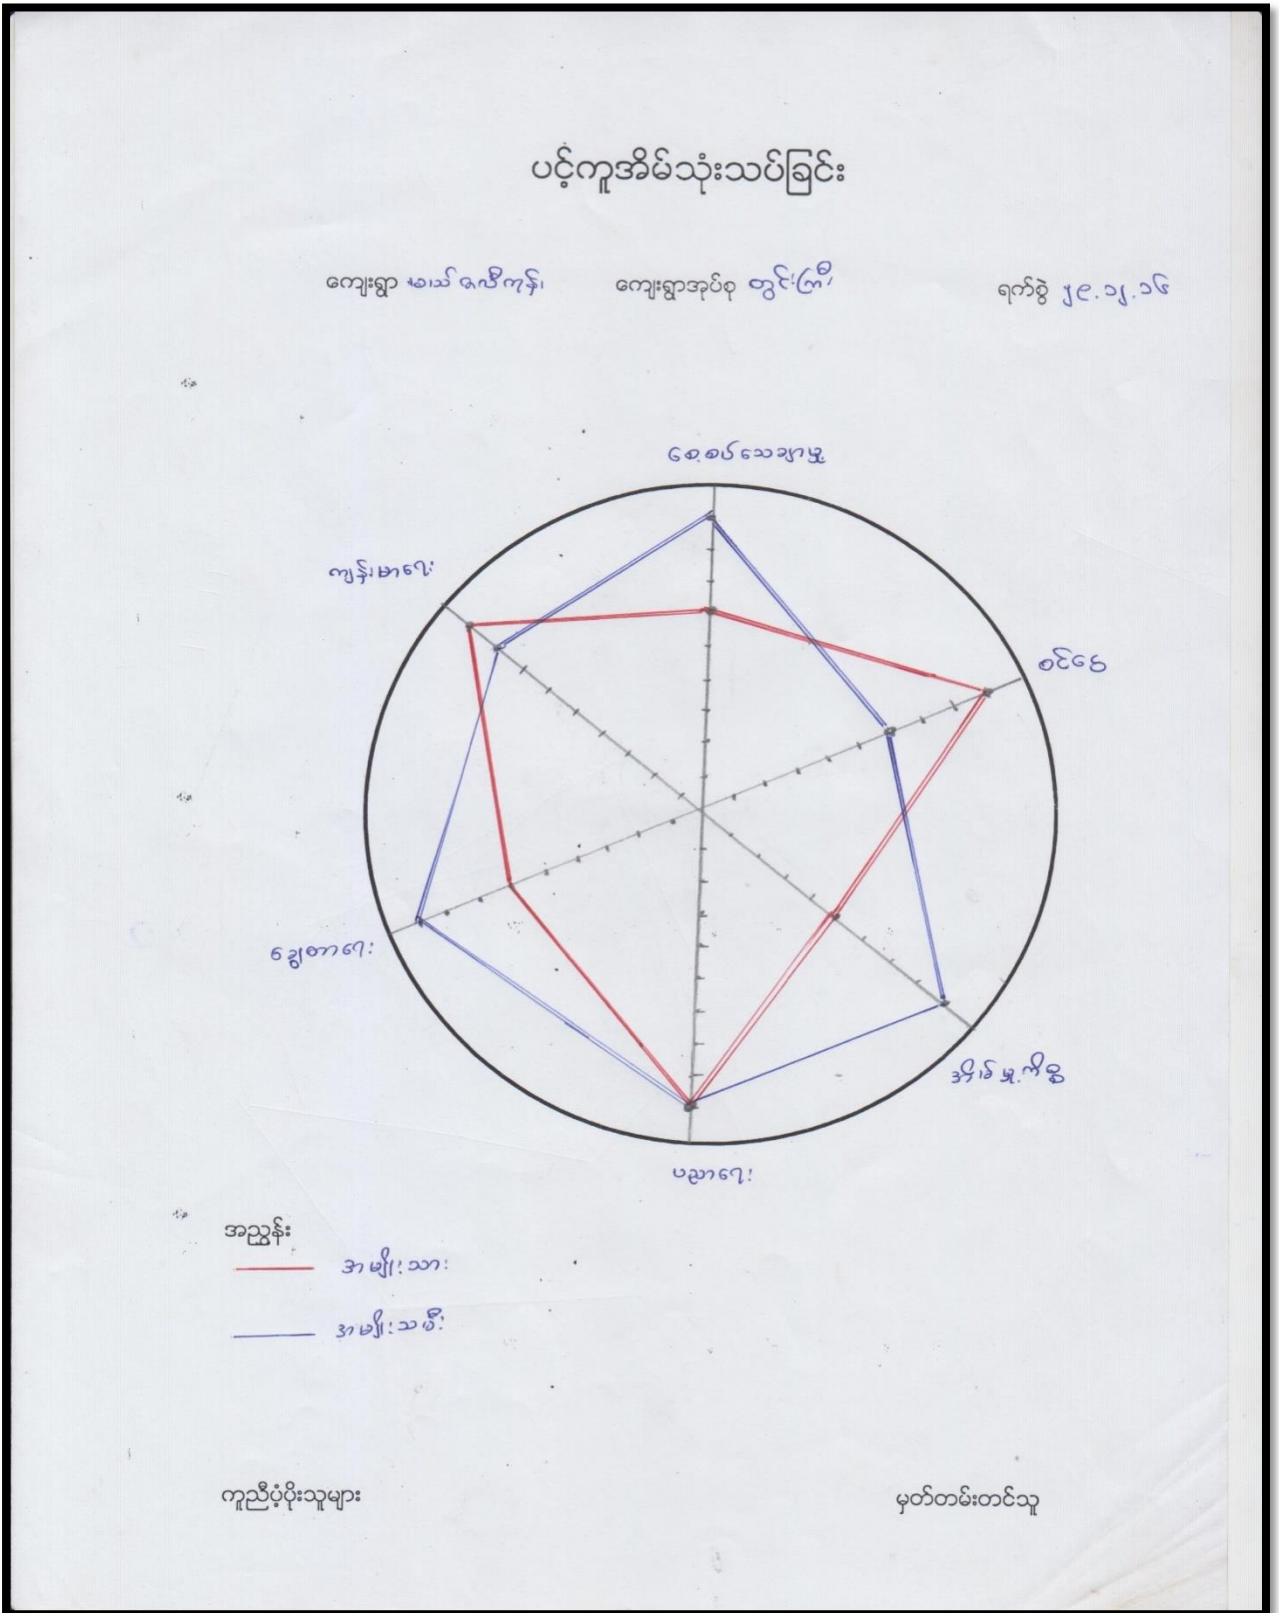 ပင့်ကူအိမ်သုံးသပ်ခြင်း
ကျေးရွာ ကျေးရွာအုပ်စု တွင်းကြီး ရက်စွဲ ၂၉.၁၂.၁၆
စေ့စပ်သေချာမှု
ကျန်းမာရေး
စင်ငွေ
ချွေတာရေး
အိမ်မှုကိစ္စ
ပညာရေး
အညွှန်း
အမျိုးသား
အမျိုးသမီး
ကူညီပံ့ပိုးသူများ မှတ်တမ်းတင်သူ